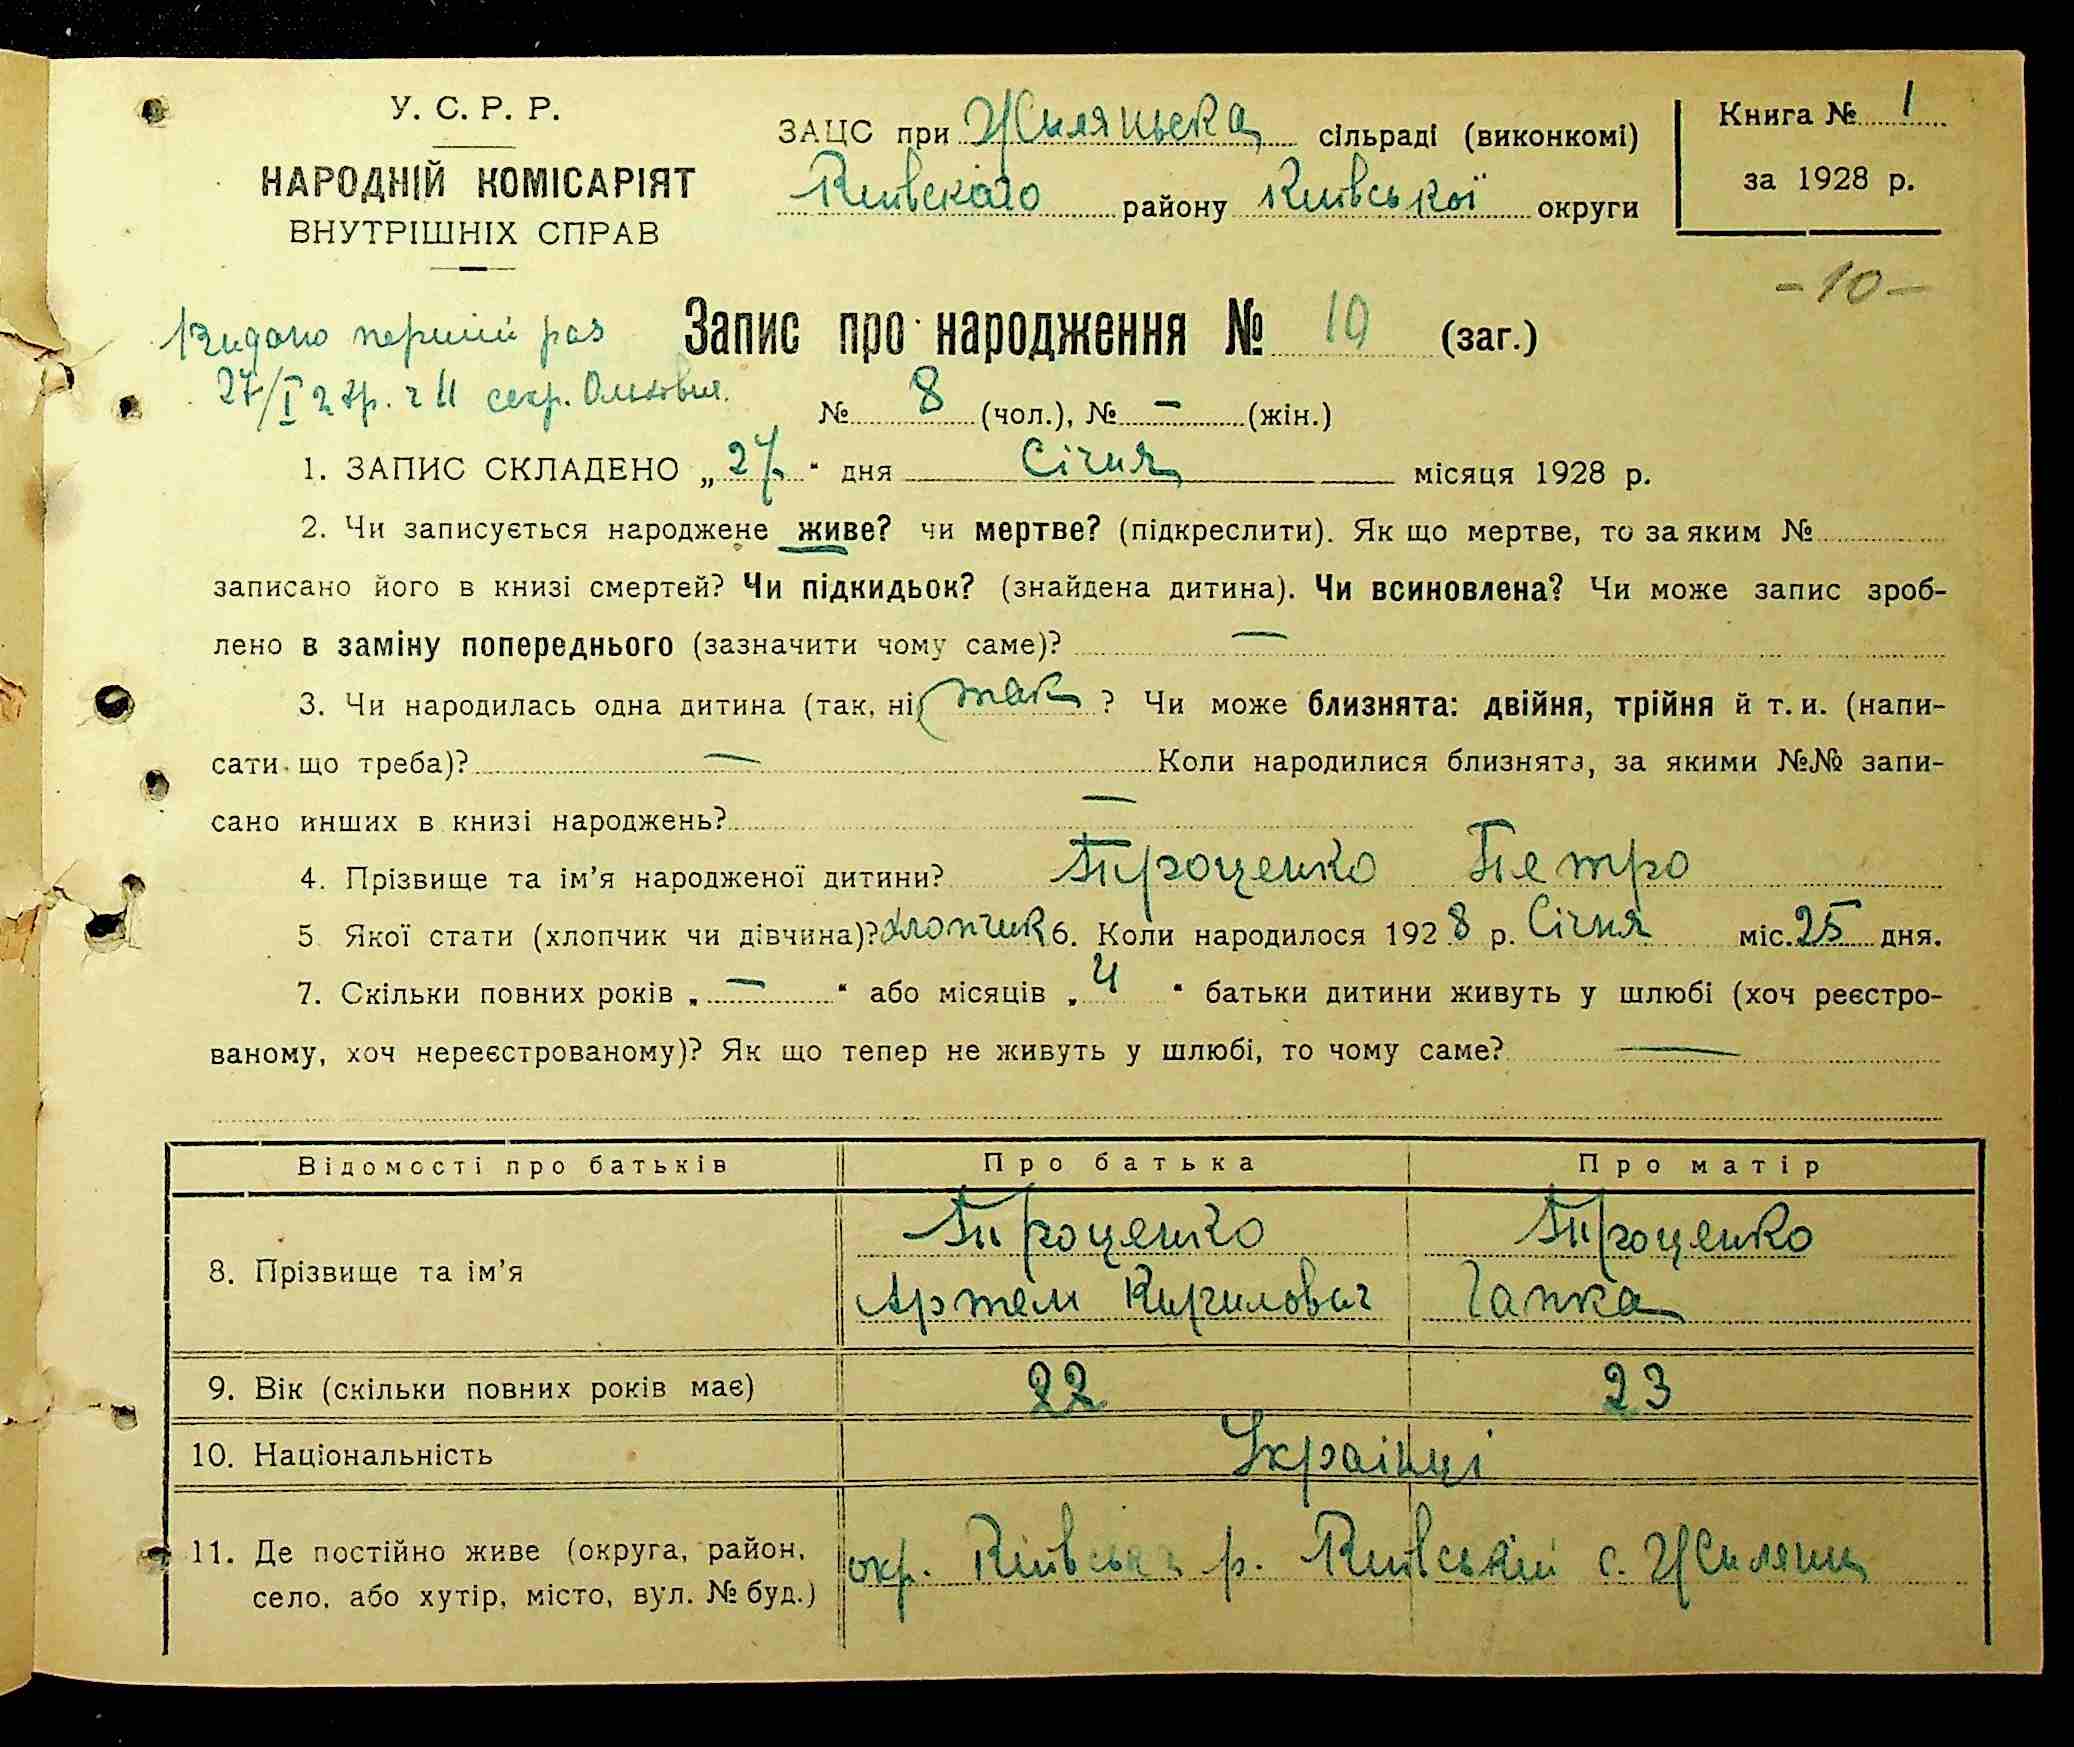 У. С. Р. Р.
НАРОДНІЙ КОМІСАРІЯТ
ВНУТРІШНІХ СПРАВ
ЗАЦС при Жиляньска сільраді (виконкомі)
Київского району Київської округи
Книга № 1
за 1928 р.
-10-
Видано перший раз
27/I 28р. ч 11 секр.
Запис про народження № 10 (заг.)
№ 8 (чол.), № — (жін.)
1. ЗАПИС СКЛАДЕНО „27“ дня Січня місяця 1928 р.
2. Чи записується народжене живе? чи мертве? (підкреслити). Як що мертве, то за яким №
записано його в книзі смертей? Чи підкидьок? (знайдена дитина). Чи всиновлена? Чи може запис зроб-
лено в заміну попереднього (зазначити чому саме)? —
3. Чи народилась одна дитина (так, ні) так ? Чи може близнята: двійня, трійня й т. и. (напи-
сати що треба)? — Коли народилися близнята, за якими №№ запи-
сано инших в книзі народжень? —
4. Прізвище та ім’я народженої дитини? Проценко Петро
5 Якої стати (хлопчик чи дівчина)? хлопчик 6. Коли народилося 1928 р. Січня міс. 25 дня.
7. Скільки повних років „ — “ або місяців „ 4 “ батьки дитини живуть у шлюбі (хоч реєстро-
ваному, хоч нереєстрованому)? Як що тепер не живуть у шлюбі, то чому саме? —
Відомості про батьків Про батька Про матір
8. Прізвище та ім’я Проценко Проценко
Артем Кирилович Гапка
9. Вік (скільки повних років має) 22 23
10. Національність Українці
11. Де постійно живе (округа, район, окр. Київська р. Київський с. Жиляни
село, або хутір, місто, вул. № буд.)